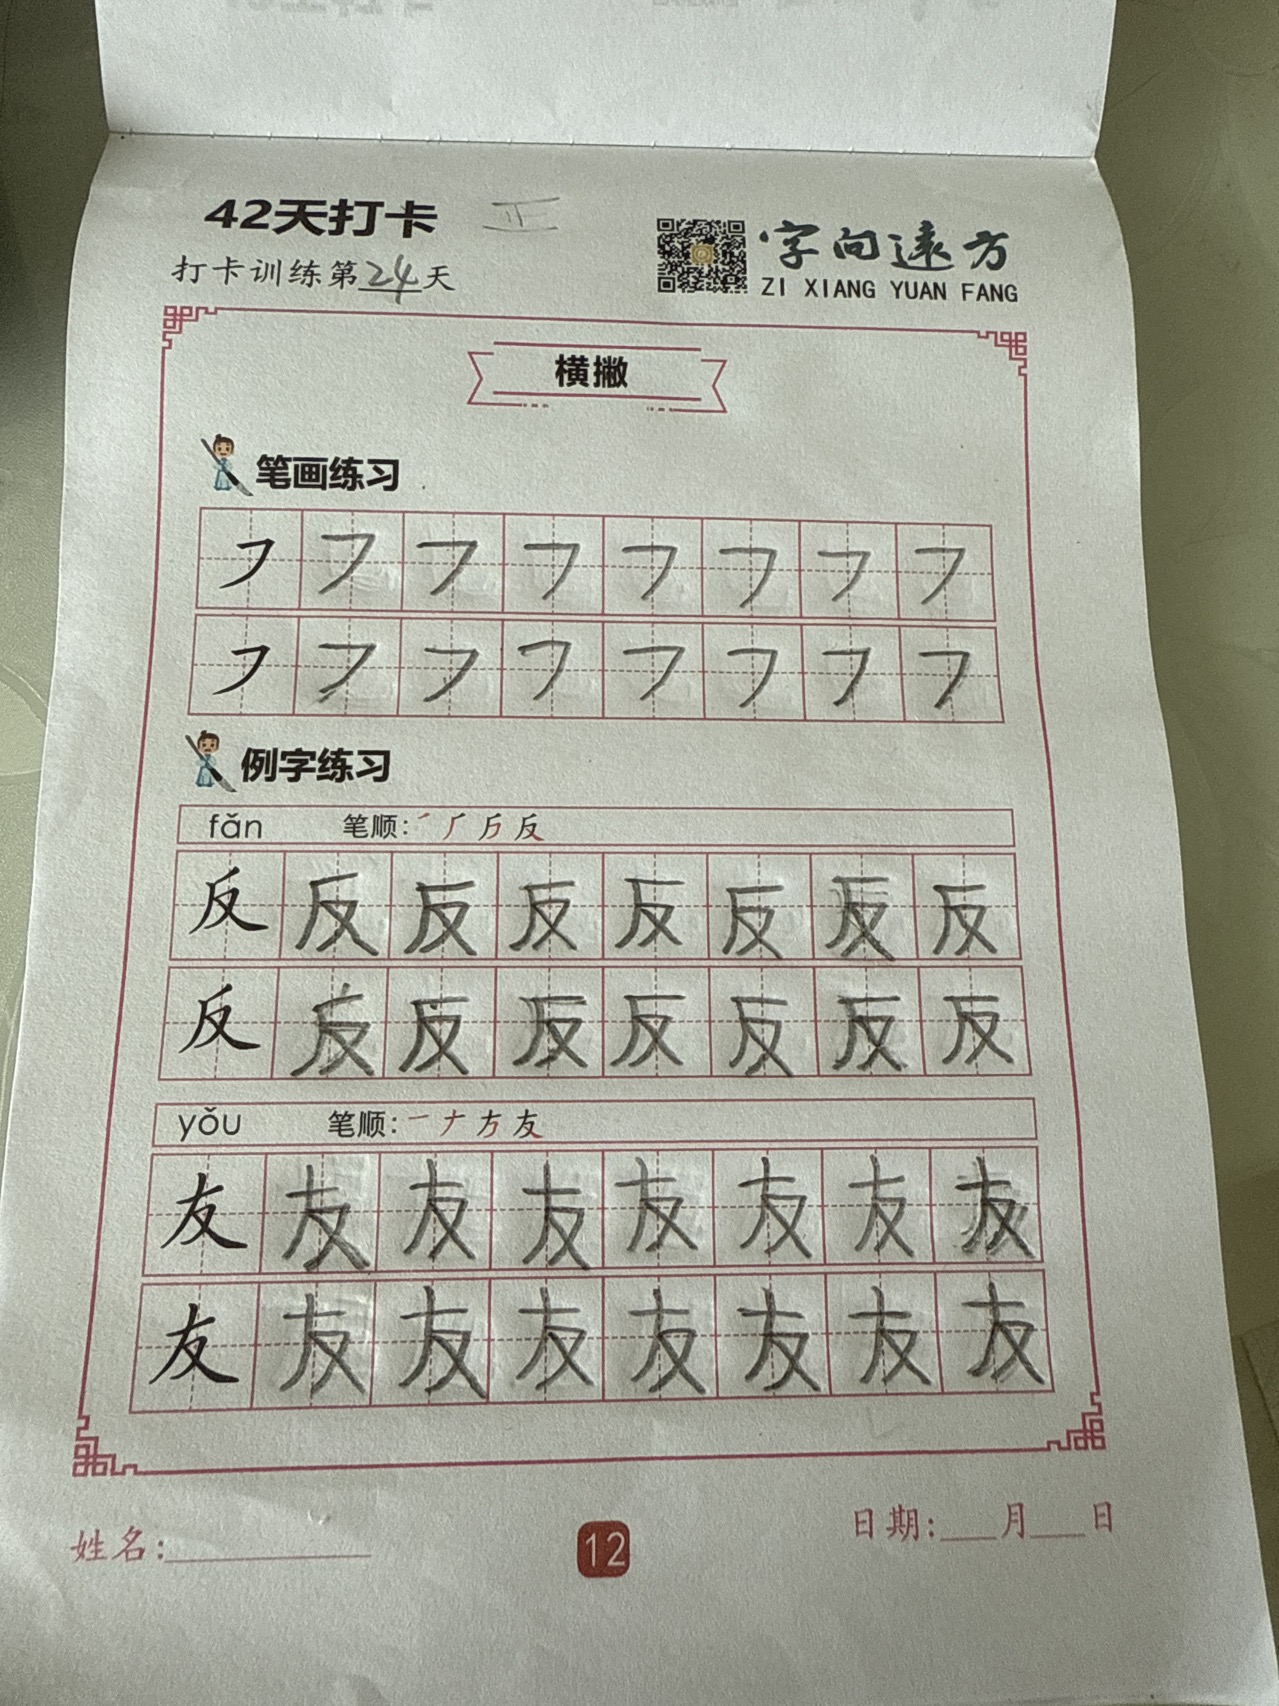 42天打卡 正
字向远方
打卡训练第24天
ZI XIANG YUAN FANG
横撇
笔画练习
㇇ ㇇ ㇇ ㇇ ㇇ ㇇ ㇇ ㇇
㇇ ㇇ ㇇ ㇇ ㇇ ㇇ ㇇ ㇇
例字练习
fǎn 笔顺: 反
反 反 反 反 反 反 反 反
反 反 反 反 反 反 反 反
yǒu 笔顺: 一 𠂇 友
友 友 友 友 友 友 友 友
友 友 友 友 友 友 友 友
姓名:
12
日期: 月 日